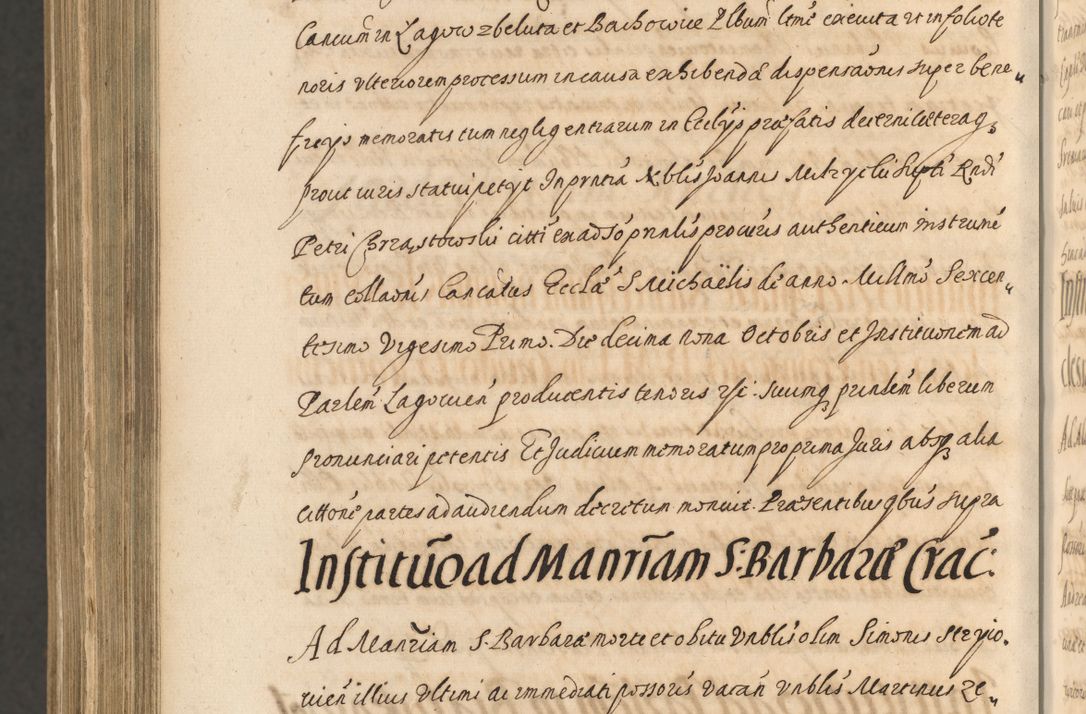 Cancum in Lagow zbeluta et Bachowice Plbum ltmè executa ut in foliote
noris ulteriorem processum in causa exhibendæ dispensaonis super bene„
ficijs memoratis cum negligentiarum in Ecclijs præfatis decerni cæteraq3
prout iuris statui petijt In pntia Nblis Joannis Mikrzycki Supli Rndi
Petri Chrząstowski citti ex adso pnalis procuris authenticum instrumē
tum collaonis Cancatus Ecclæ S Michaëlis de anno Millmo Sexcen„
tesimo Vigesimo Primo. Die decima nona Octobris et Institutionem ad
Parlem Lagouien producentis tenoris rsi. suumq3 prindem liberum
pronunciari petentis Et Judicium memoratum pro prima Juris absq3 alia
cittone partes ad audiendum decretum monuit. Præsentibus qbus supra
Institūo ad Manriam S. Barbaræ Crac:
Ad Manriam S. Barbaræ morte et obitu Vnblis olim Simonis Serpio.
uien illius ultimi ac immediati possoris vacan Vnblis Martinus Ze„